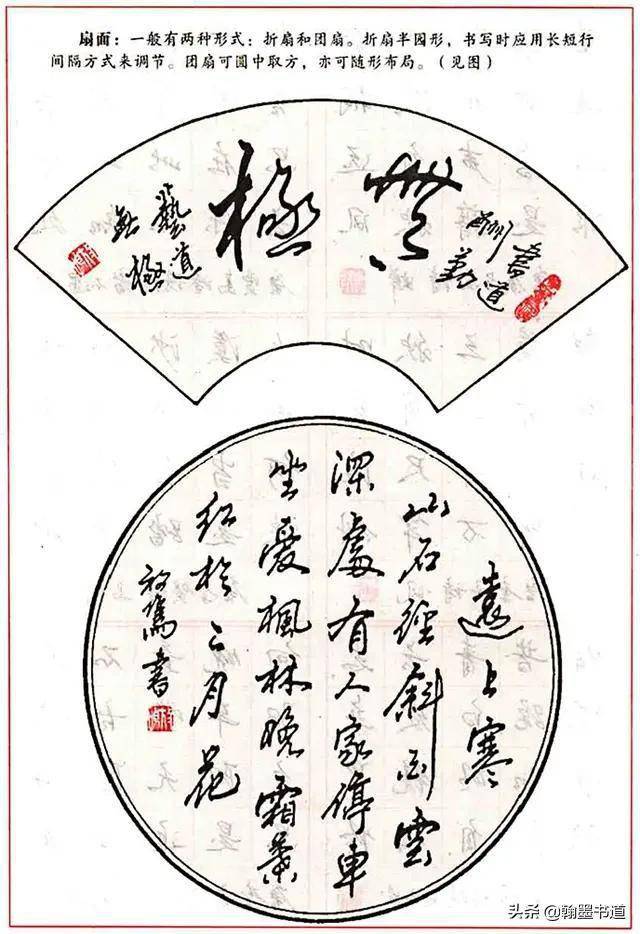 扇面：一般有两种形式：折扇和团扇。折扇半园形，书写时应用长短行
间隔方式来调节。团扇可圆中取方，亦可随形布局。（见图）
書道
酬勤
無極
藝道
無極
遠上寒
山石徑斜白雲
深處有人家停車
坐愛楓林晚霜葉
紅於二月花
書
头条 @翰墨书道